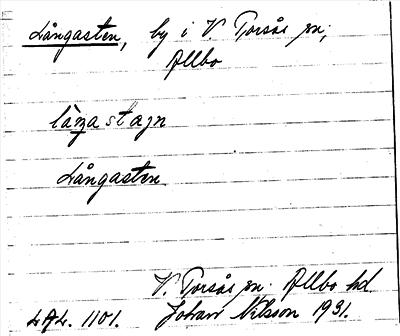 Långasten, by i V. Torsås sn,
Allbo
Långasten
V. Torsås sn. Allbo hd.
LAL. 1101. Johan Nilsson 1931.